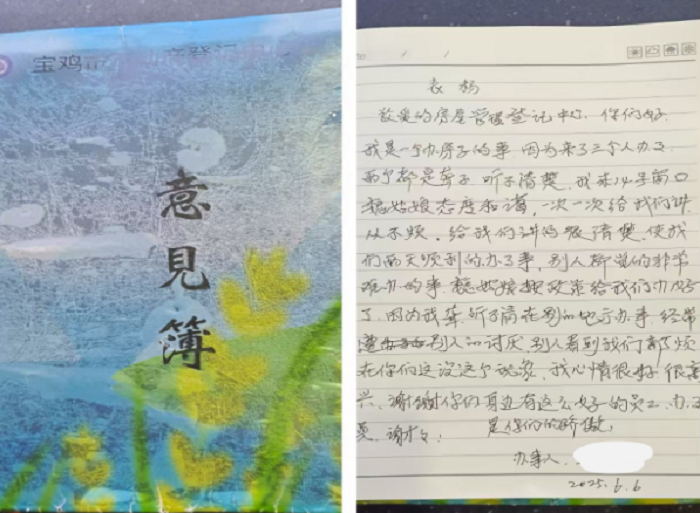 宝鸡市 产登记
意
見
簿
表扬
敬爱的房屋管理登记中心，你们好
我是一个办房子的事，因为来了三个人办事
两个都是聋子，听不清楚，我来 号窗口
姑娘态度和蔼，一次一次给我们讲
从不烦，给我们讲的很清楚，使我
们两天顺利的办了事，别人都觉的非常
难办的事 姑娘按政策给我们办好
了，因为我聋，听不清在别的地方办事，经常
遭 别人的讨厌，别人看到我们都烦
在你们这没这个现象，我心情很好，很高
兴，谢谢你们身边有这么好的员工，办事
员，谢谢， 是你们的骄傲，
办事人
2025.6.6